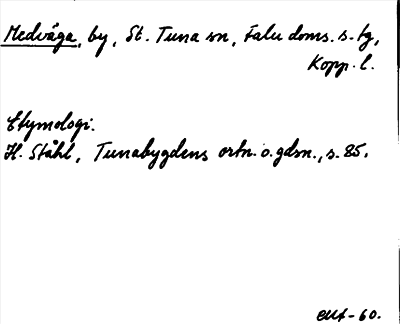 Medvåga, by, St. Tuna sn, Falu doms. s. tg,
Kopp. l.
Etymologi.
H. Ståhl, Tunabygdens ortn. o. gdsn., s. 85.
-60.